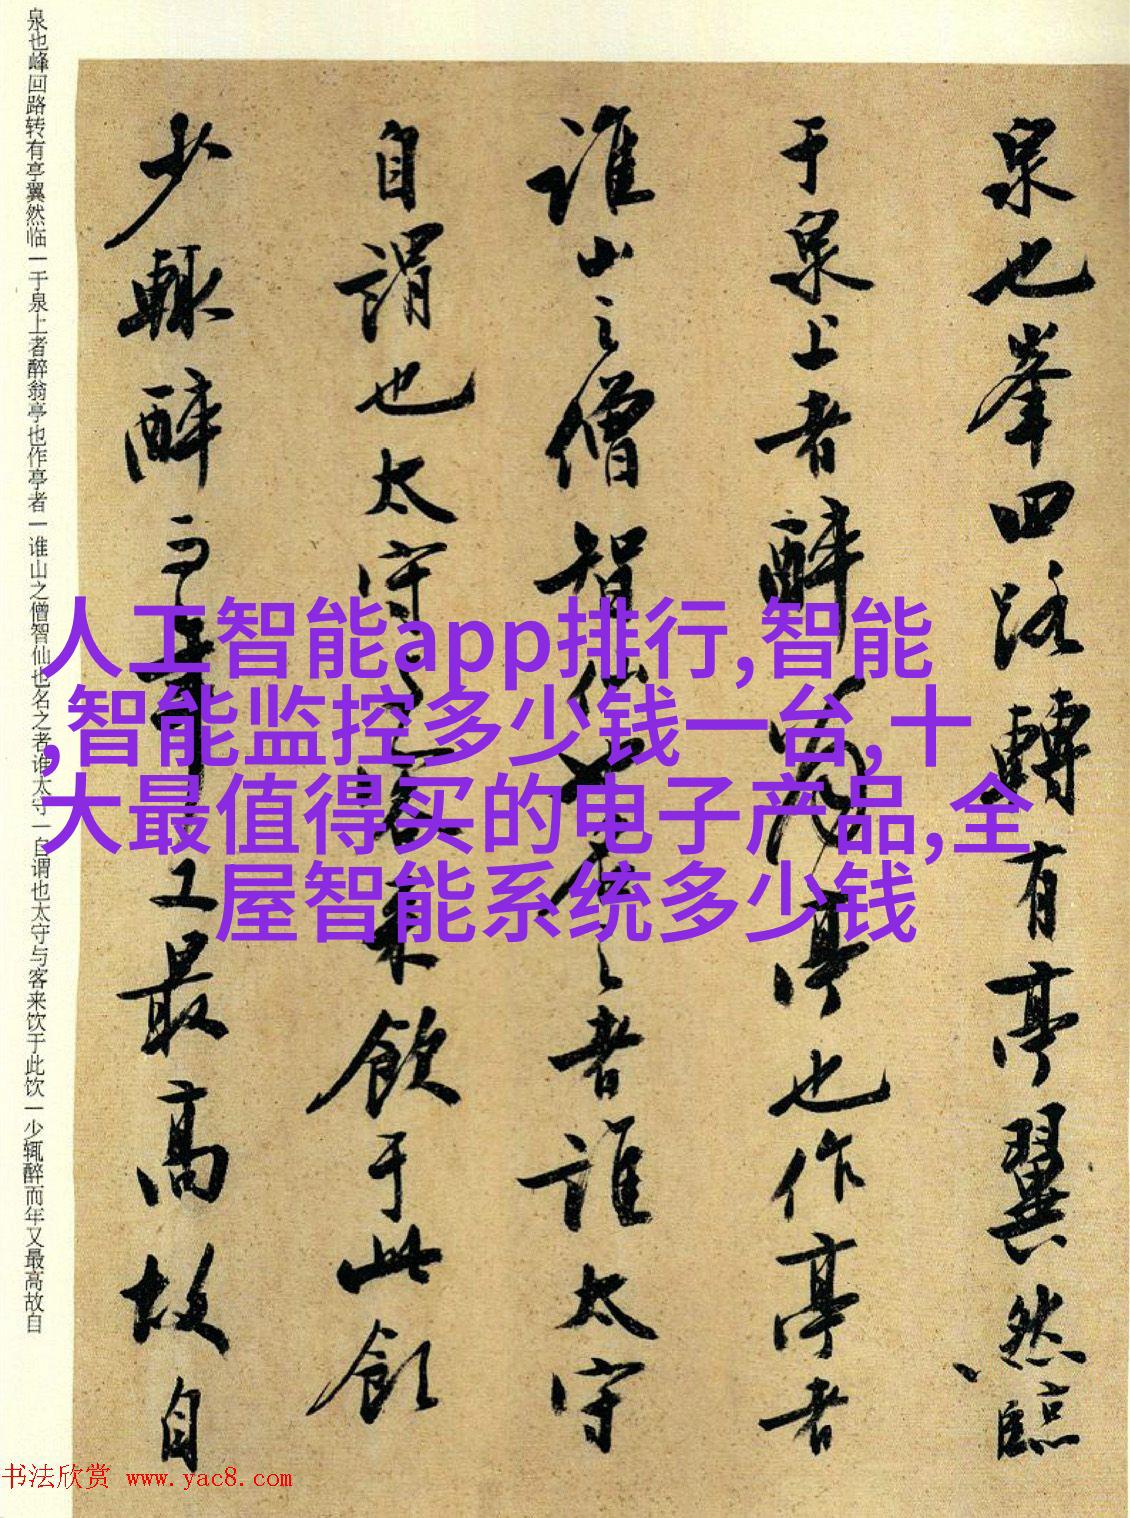 泉也峯回路轉有亭翼然臨
于泉上者醉翁亭也作亭者
誰山之僧智仙也名之者誰太守
自謂也太守与客来飲于此飲
少輒醉而年又最高故自
泉也峰回路转有亭翼然临一于泉上者醉翁亭也作亭者一谁山之僧智仙也名之者谁太守一自谓也太守与客来饮于此饮一少辄醉而年又最高故自
人工智能app排行,智能
,智能监控多少钱一台,十
大最值得买的电子产品,全
屋智能系统多少钱
书法欣赏 www.yac8.com